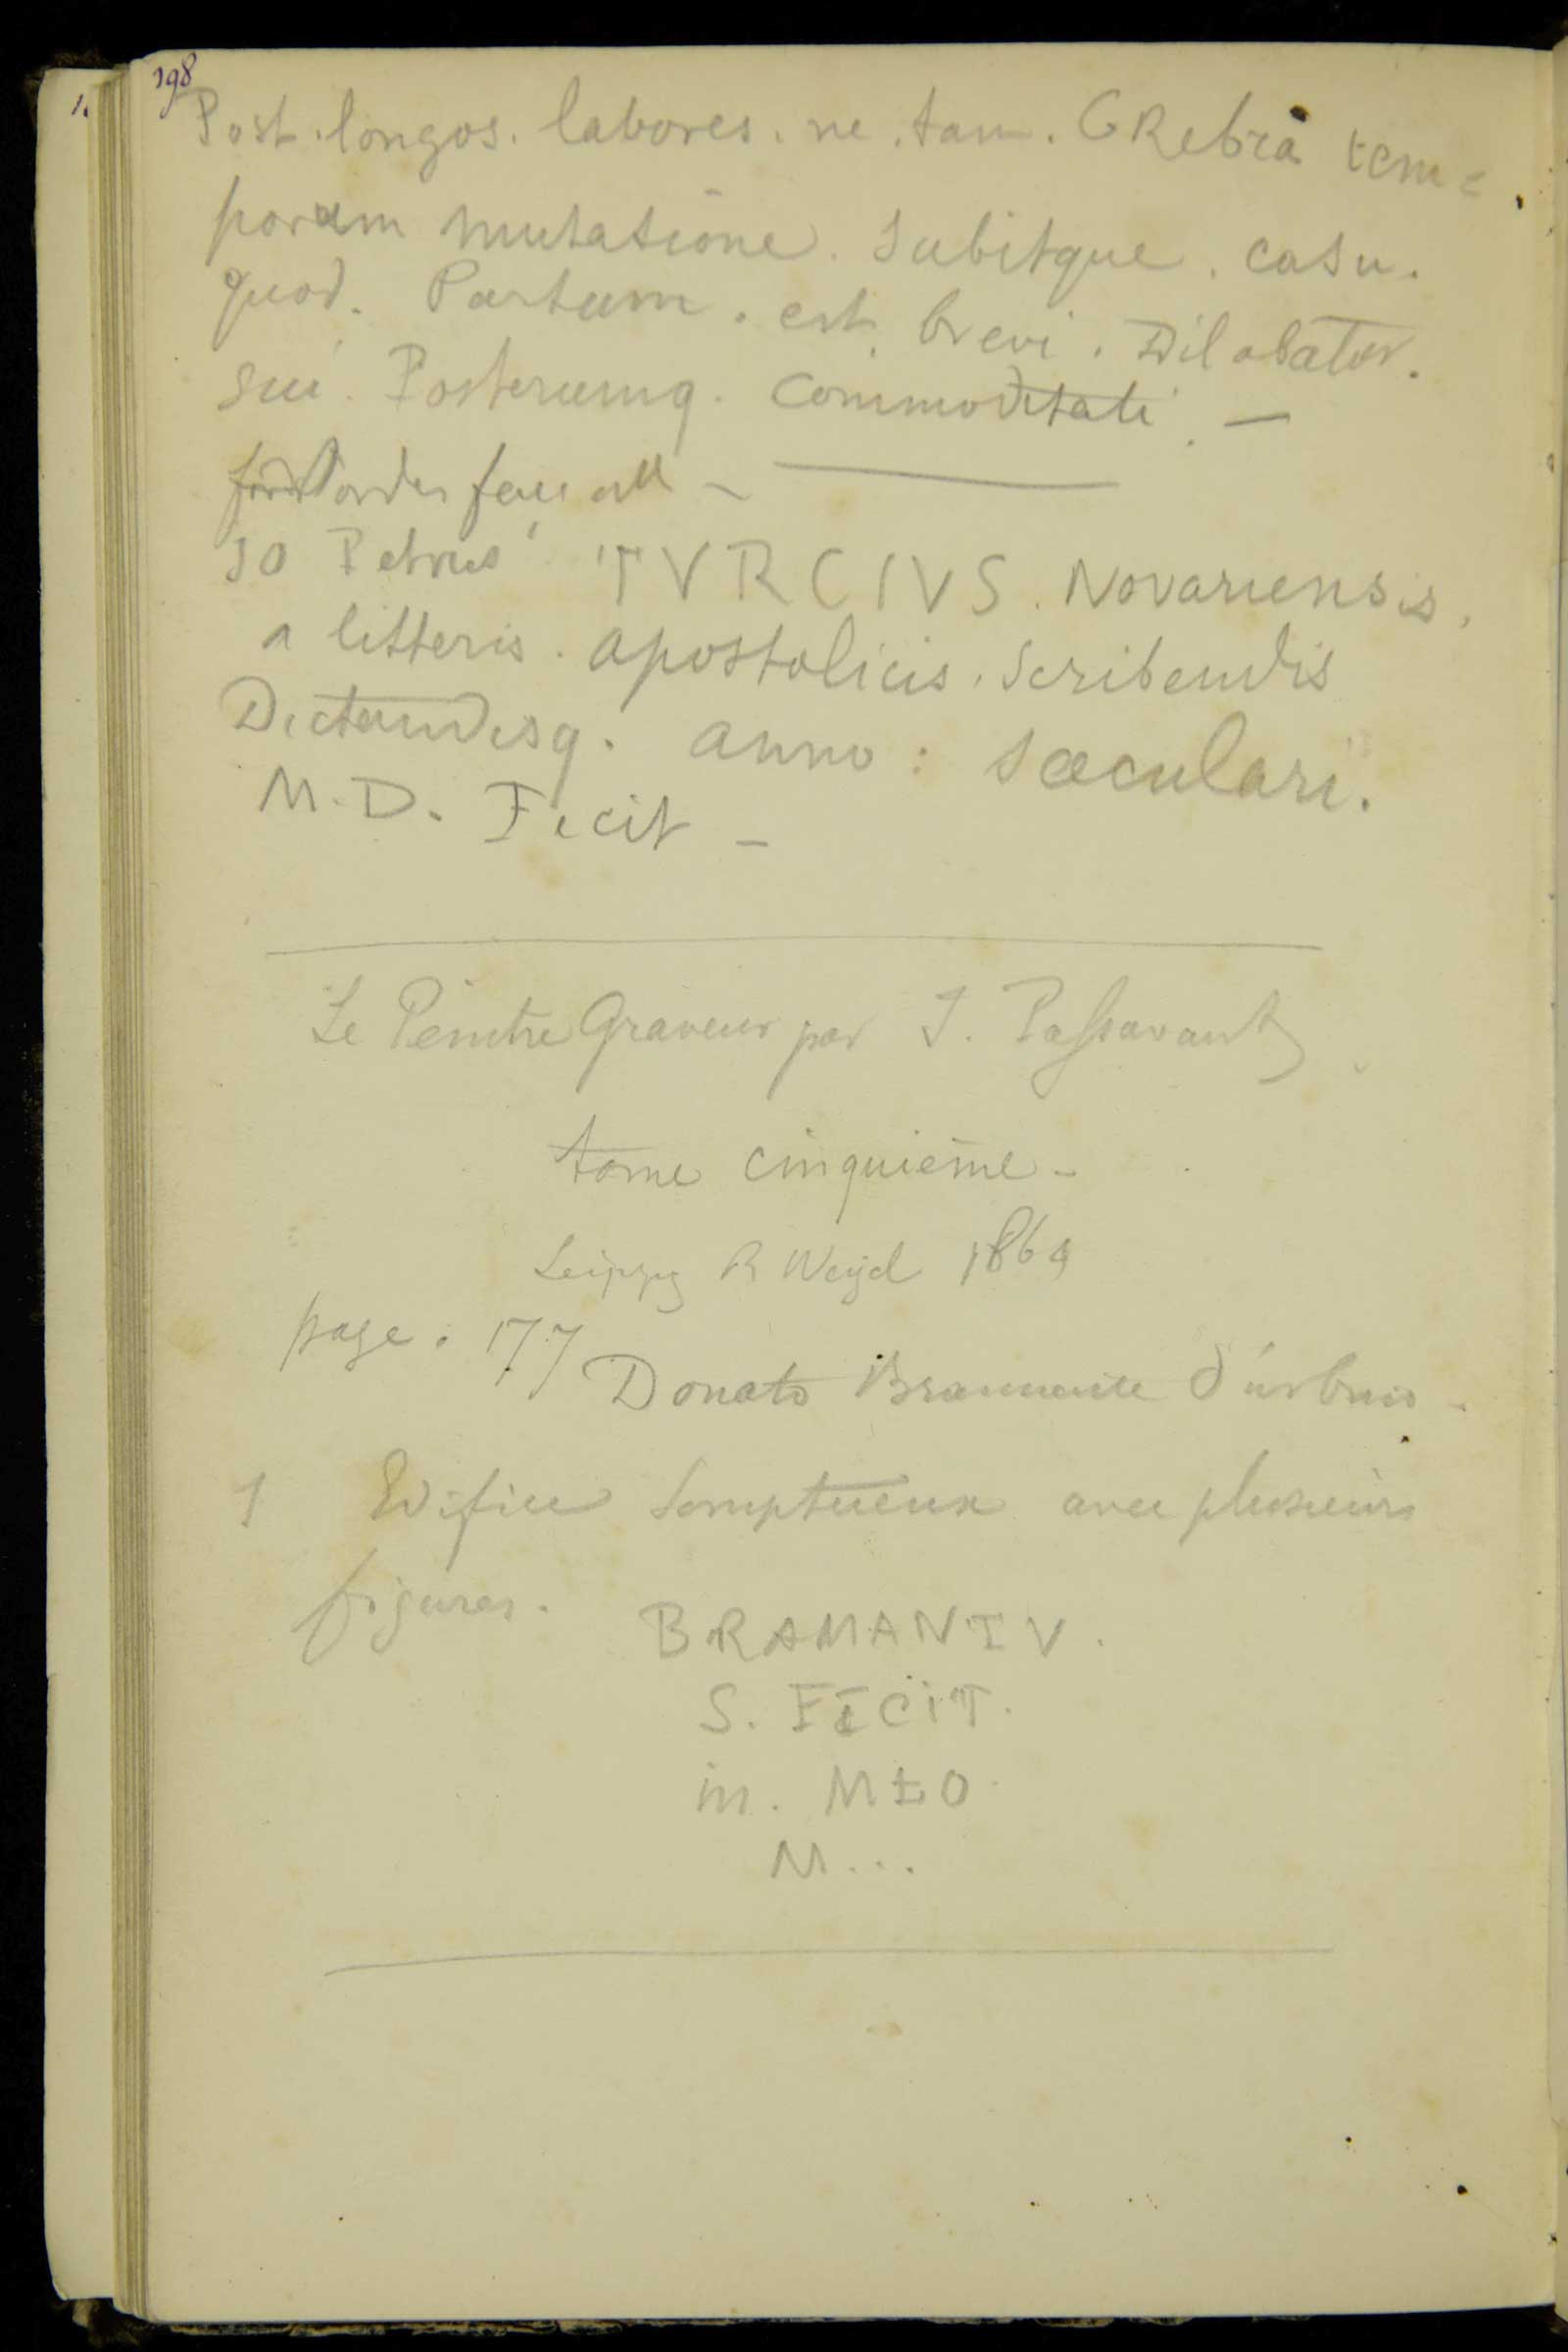 198
Post. longos. labores. ne. tam. CRebra tem=
porum mutatione. Subitque. casu.
quod. Partum. est. brevi. Dilabatur.
sui. Posterumq. Commoditati. —
10 Petrus TVRCIVS. Novariensis.
a litteris. apostolicis. Scribendis
Dictandisq. anno: Sæculari.
M.D. Fecit —
Le Peintre Graveur par J. Passavant
tome cinquième -
Leipzig R Weigel 1864
page. 177
Donato Bramante d'urbino -
1 Edifice Somptueux avec plusieurs
figures.
BRAMANTV.
S. FECIT.
in. MLO.
M...